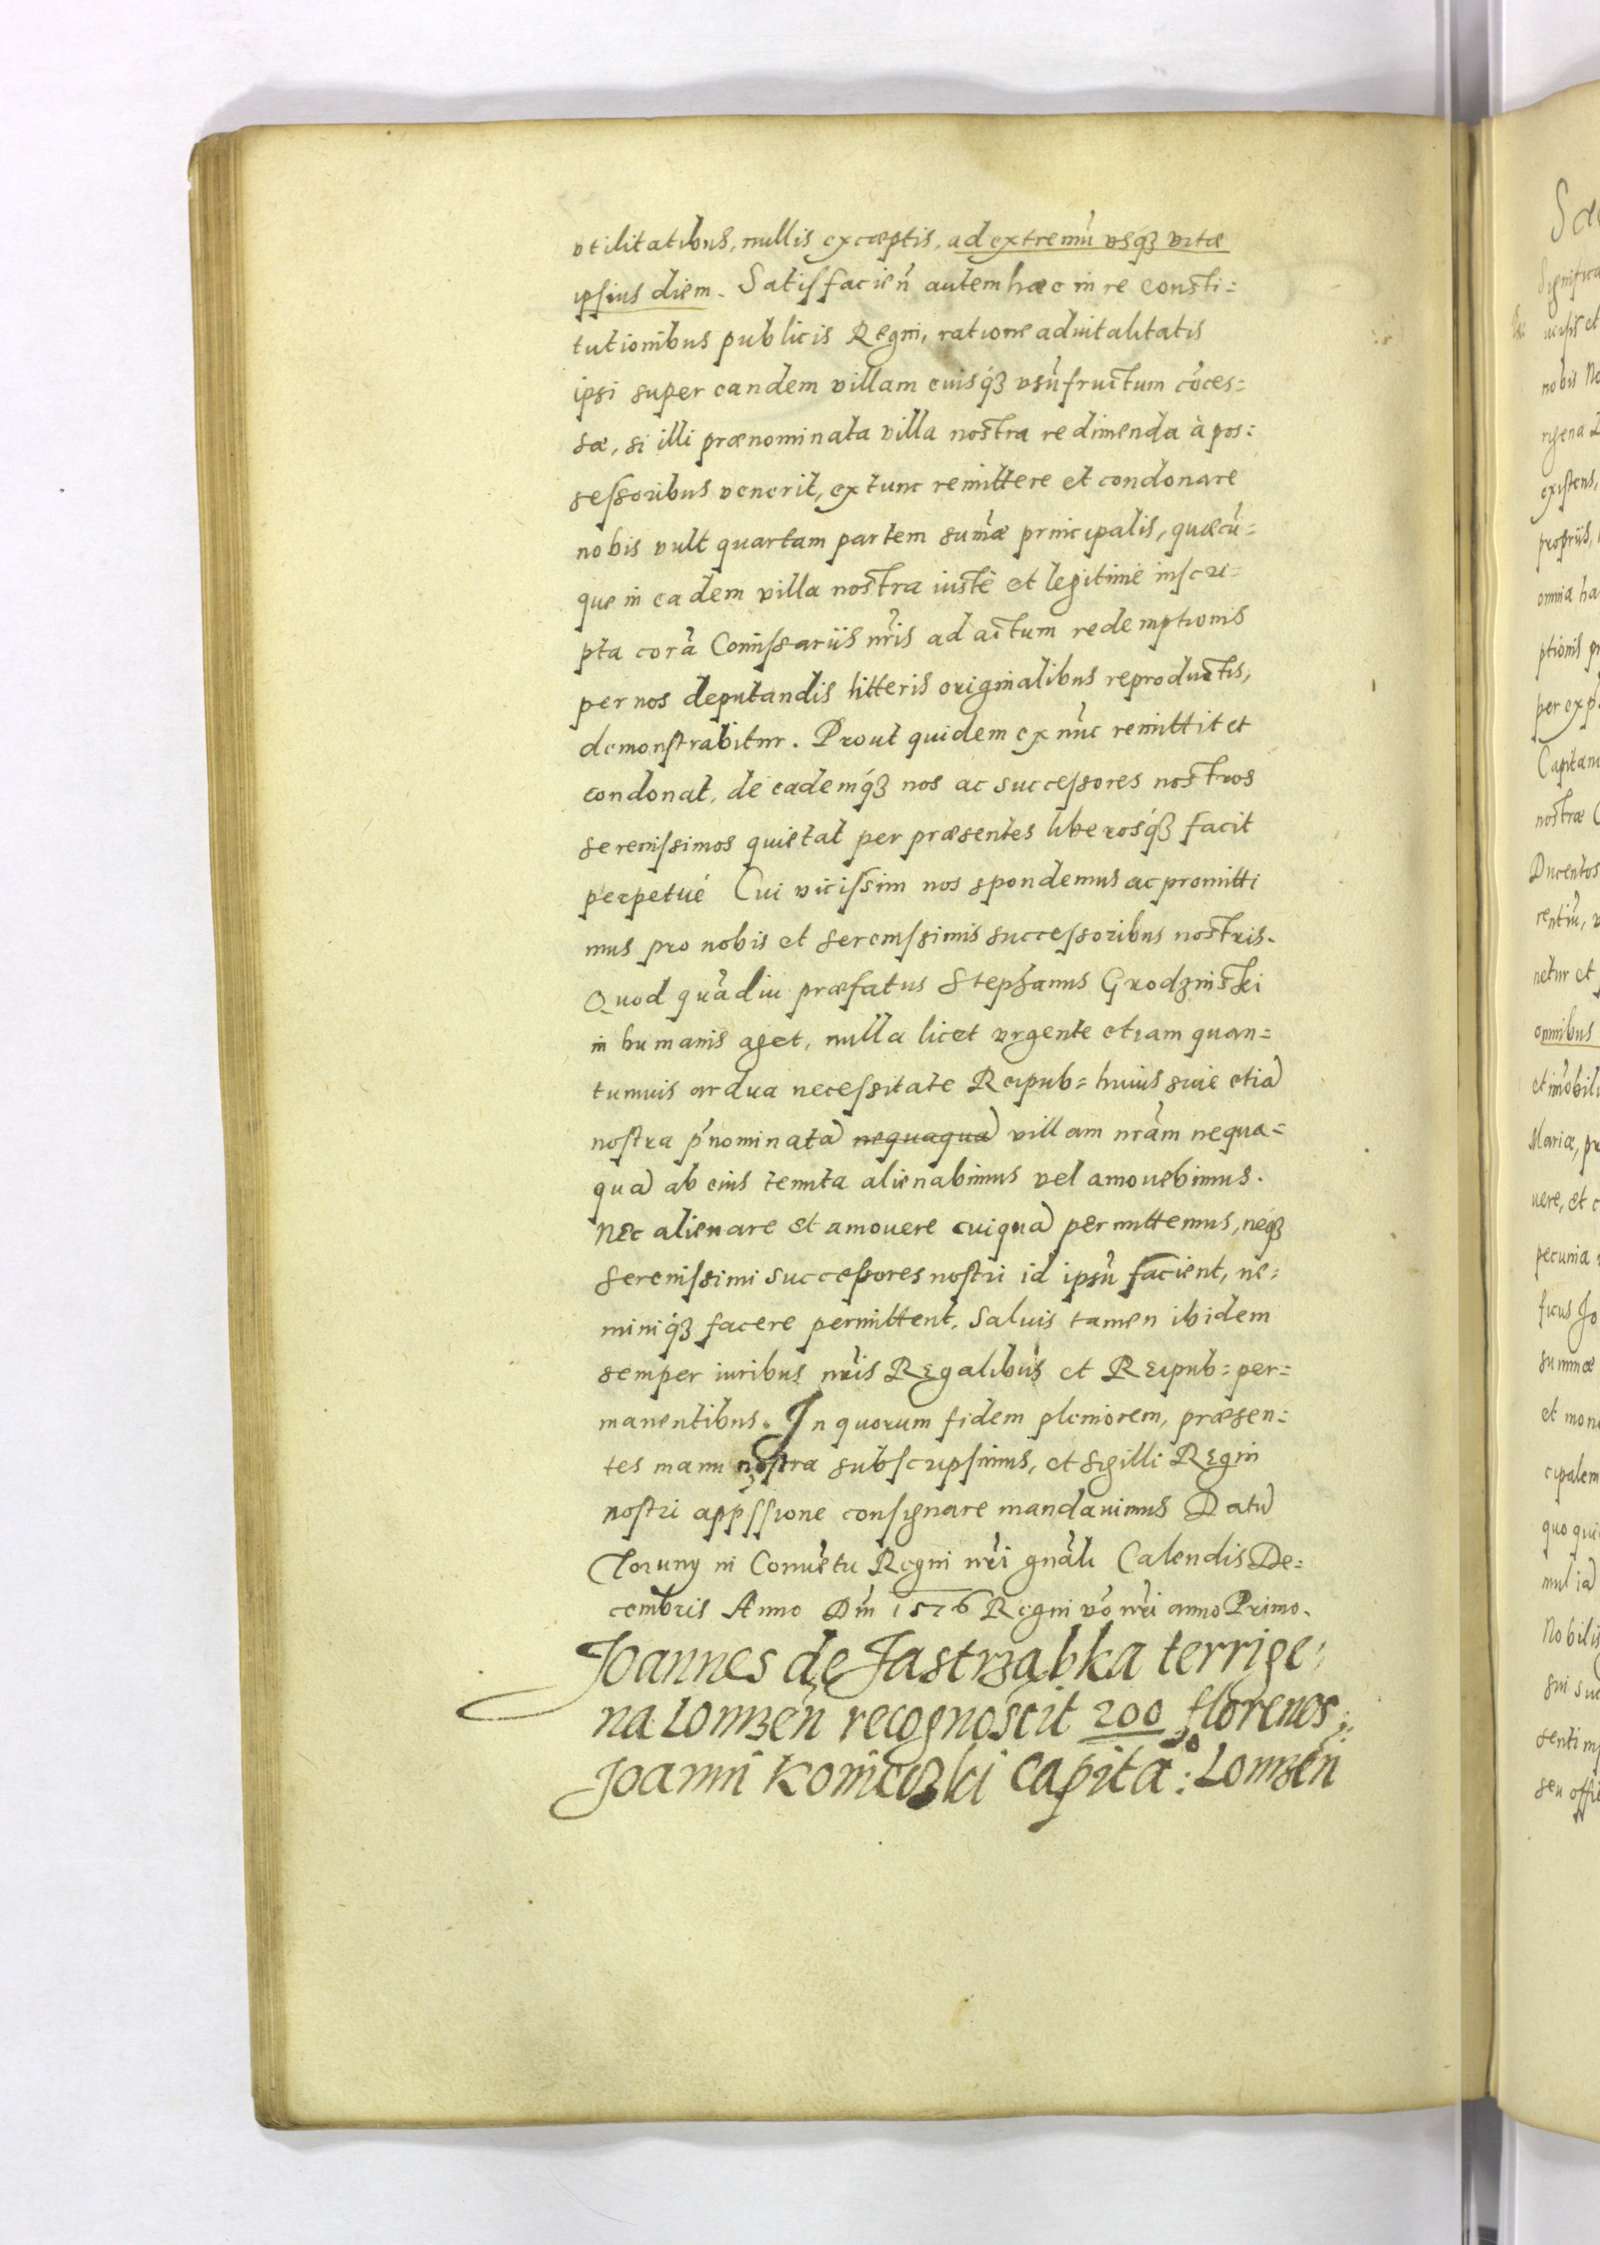 vtilitatibus, nullis exceptis, ad extremũ vsq́ꝫ vitæ
ipsius diem. Satisfacieñ autem hac in re consti=
tutionibus publicis Regni, ratione aduitalitatis
ipsi super eandem villam eiusq́ꝫ vsũfructum cõces=
sæ, si illi prænominata villa nostra redimenda à pos=
sessoribus venerit, extunc remittere et condonare
nobis vult quartam partem sum̃æ principalis, quæcũ=
que in eadem villa nostra iustè et legitimè inscri=
pta corã Com̃issariis nr̃is ad actum redemptionis
per nos deputandis litteris originalibus reproductis,
demonstrabitur. Prout quidem ex nũc remittit et
condonat, de eademq́ꝫ nos ac successores nostros
serenissimos quietat per præsentes liberosq́ꝫ facit
perpetué Cui vicissim nos spondemus ac promitti
mus pro nobis et serenissimis successoribus nostris.
Quod quãdiu præfatus Stephanus Grodzinski
in humanis aget, nulla licet vrgente etiam quan=
tumuis ardua necessitate Reipub= huius siue etiã
nostra p̃nominatã nequaquã villam nrãm nequa=
quã ab eius tenuta alienabimus vel amouebimus.
Nec alienare et amouere cuiquã permittemus, neqꝫ
serenissimi successores nostri id ipsũ facient, ne=
miniq́ꝫ facere permittent. Saluis tamen ibidem
semper iuribus nr̃is Regalibus et Reipub= per=
manentibus. In quorum fidem pleniorem, præsen=
tes manu nostra subscripsimus, et sigilli Regni
nostri appssione consignare mandauimus Datũ
Toruny in Conuẽtu Regni nr̃i gnãli Calendis De=
cembris Anno Dñi 1576 Regni võ nr̃i anno Primo.
Joannes de Jastrząbka terrige=
na Lomzeñ recognoscit 200 florenos
Joanni capitã: Lomzeñ
Sa
Significa
nobis No
rigena
existens,
propriis,
omnia ha
ptionis
per exp
Capitan
nostræ
Ducentos
rentiũ,
netur et
omnibus
Mariæ,
uere, et
pecunia
ficus Jo
summæ
et mon
cipalem
quo qui
Nobilis